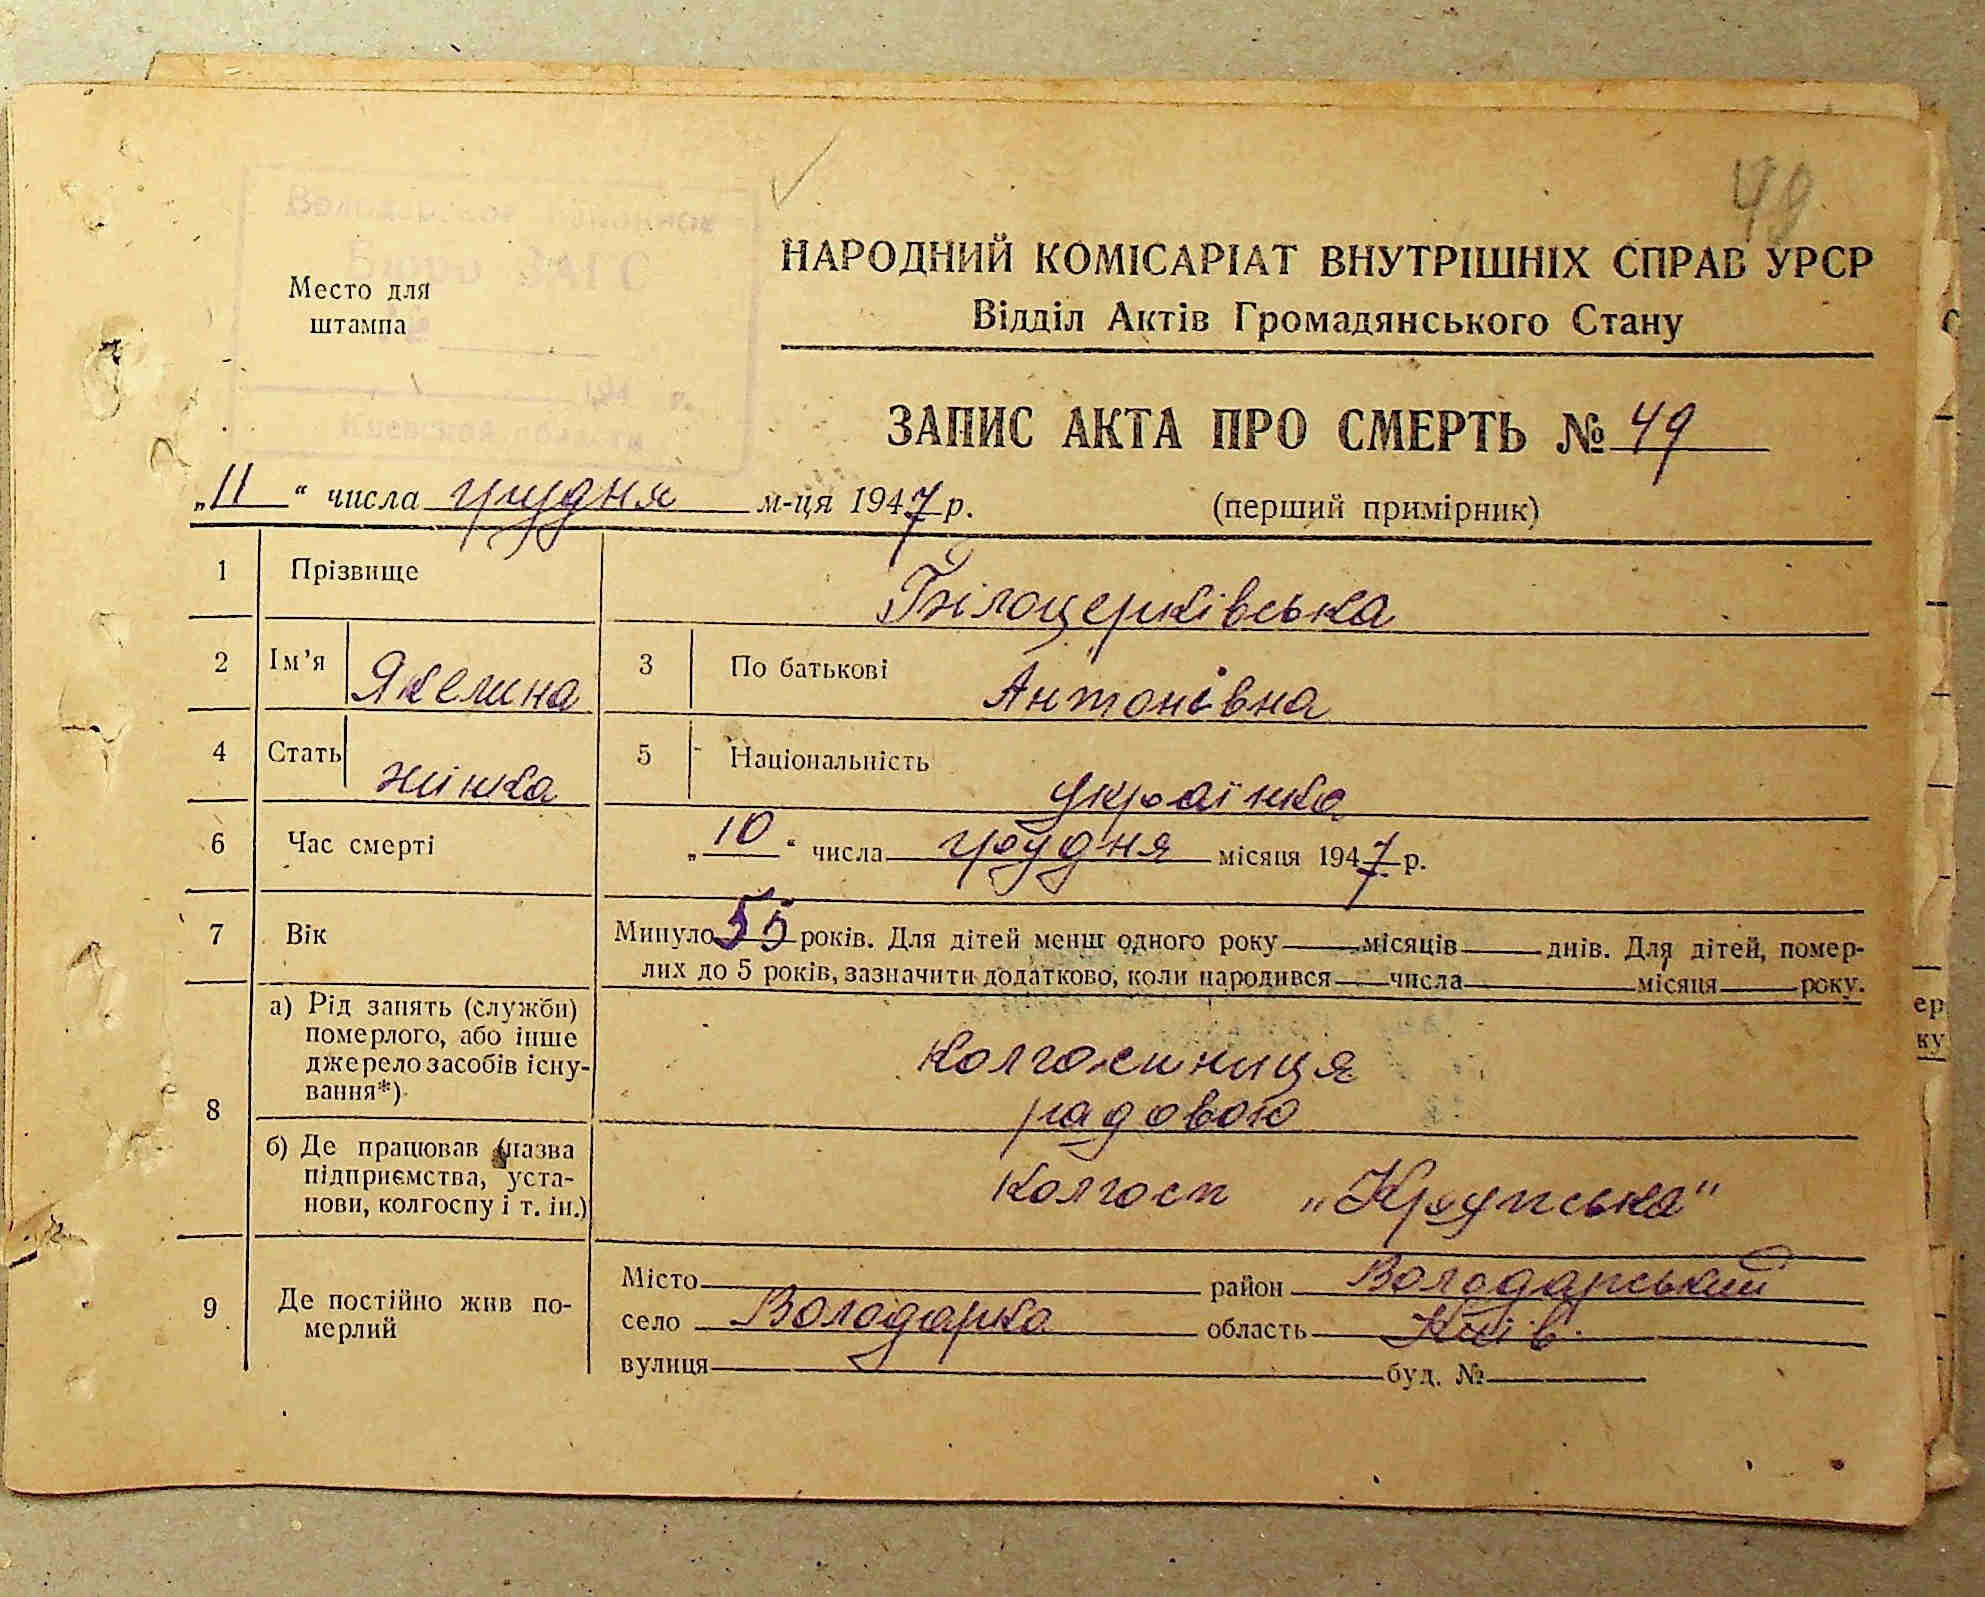 49
Бюро ЗАГС
Место для
штампа
Киевской области
НАРОДНИЙ КОМІСАРІАТ ВНУТРІШНІХ СПРАВ УРСР
Відділ Актів Громадянського Стану
ЗАПИС АКТА ПРО СМЕРТЬ № 49
„11“ числа грудня м-ця 1947 р. (перший примірник)
1 Прізвище Білоцерківська
2 Ім’я Якелина 3 По батькові Антонівна
4 Стать жінка 5 Національність українка
6 Час смерті „10“ числа грудня місяця 1947 р.
7 Вік Минуло 55 років. Для дітей менш одного року місяців днів. Для дітей, помер-
лих до 5 років, зазначити додатково, коли народився числа місяця року.
8 а) Рід занять (служби)
померлого, або інше
джерело засобів існу-
вання*)
колгоспниця
радовою
б) Де працював (назва
підприємства, уста-
нови, колгоспу і т. ін.)
Колгосп „Крупська“
9 Де постійно жив по-
мерлий
Місто район Володарський
село Володарка область Київ.
вулиця буд. №
ер
ку